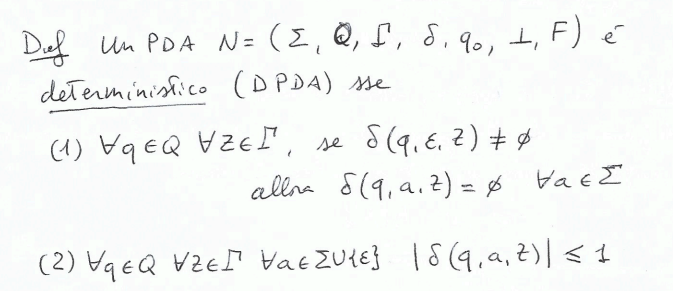 Def Un PDA N = (Σ, Q, Γ, δ, q₀, ⊥, F) é
deterministico (DPDA) sse
(1) ∀q∈Q ∀Z∈Γ, se δ(q, ε, Z) ≠ ∅
allora δ(q, a, Z) = ∅ ∀a∈Σ
(2) ∀q∈Q ∀Z∈Γ ∀a∈Σ∪{ε} |δ(q, a, Z)| ≤ 1